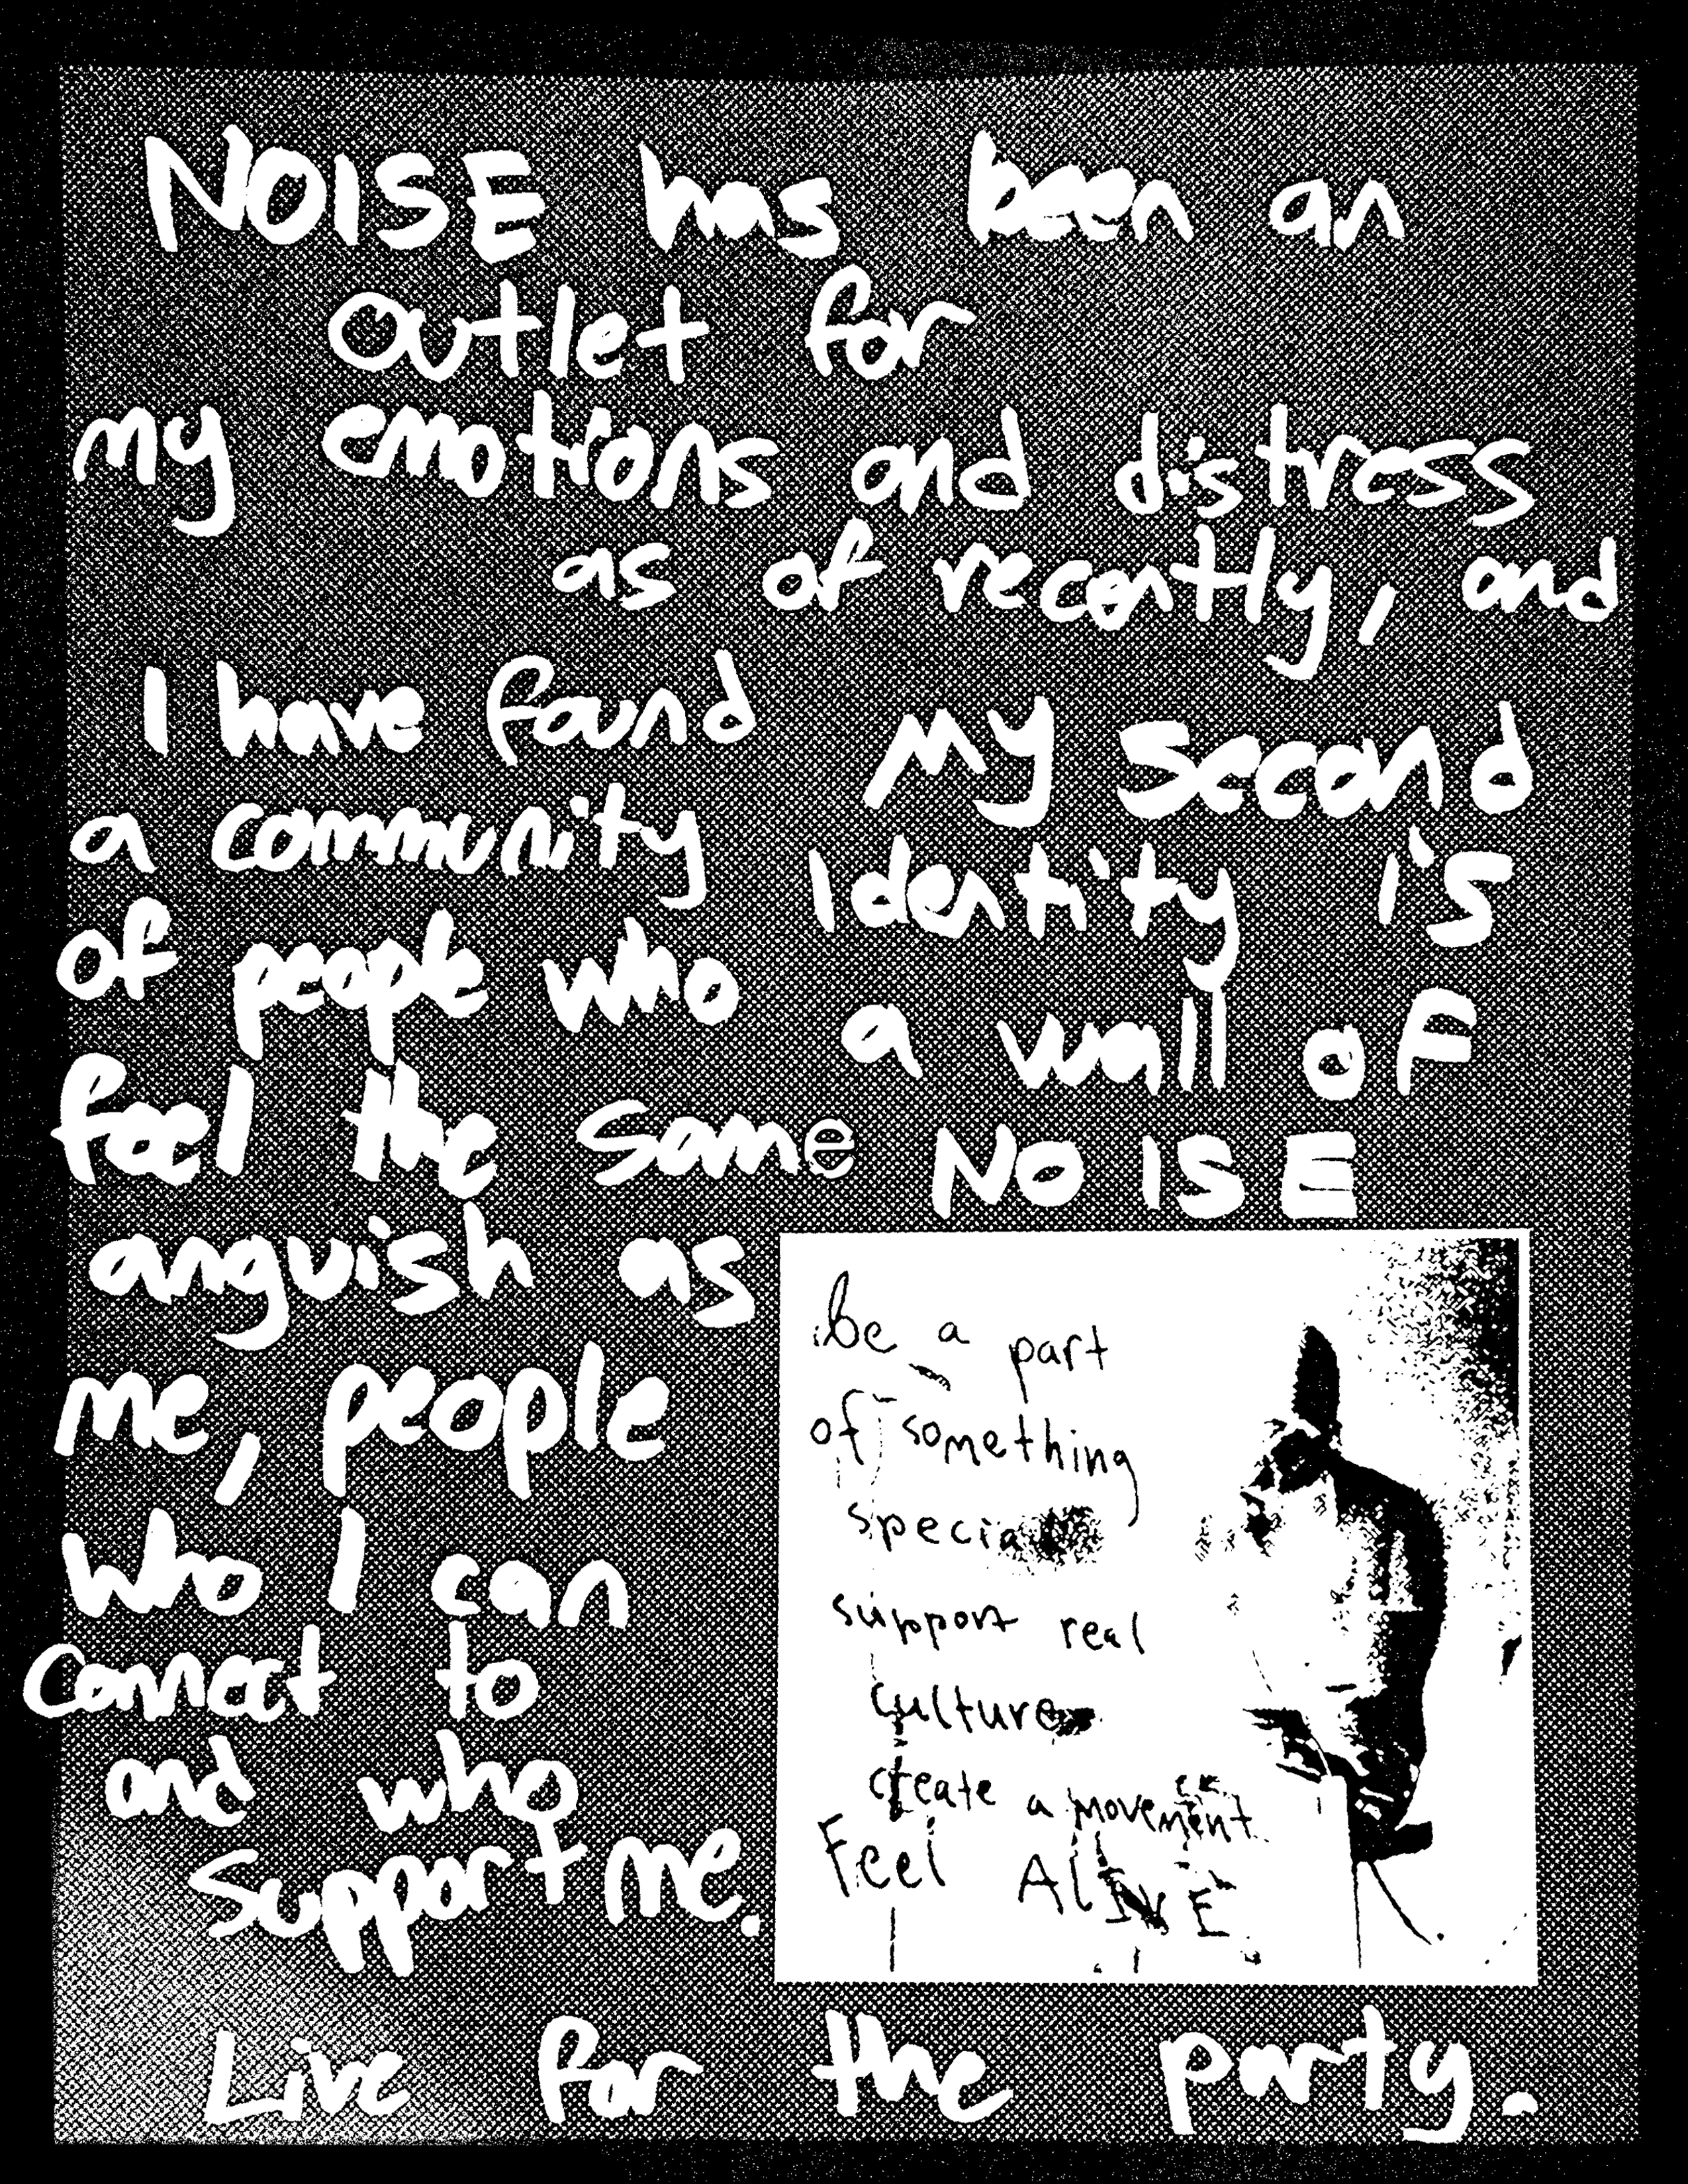 NOISE has been an
outlet for
my emotions and distress
as of recently, and
I have found
a community
of people who
feel the same
anguish as
me, people
who I can
connect to
and who
support me.
My second
identity is
a wall of
NOISE
be a part
of something
special
support real
culture
create a movement
Feel ALIVE
Live for the party.